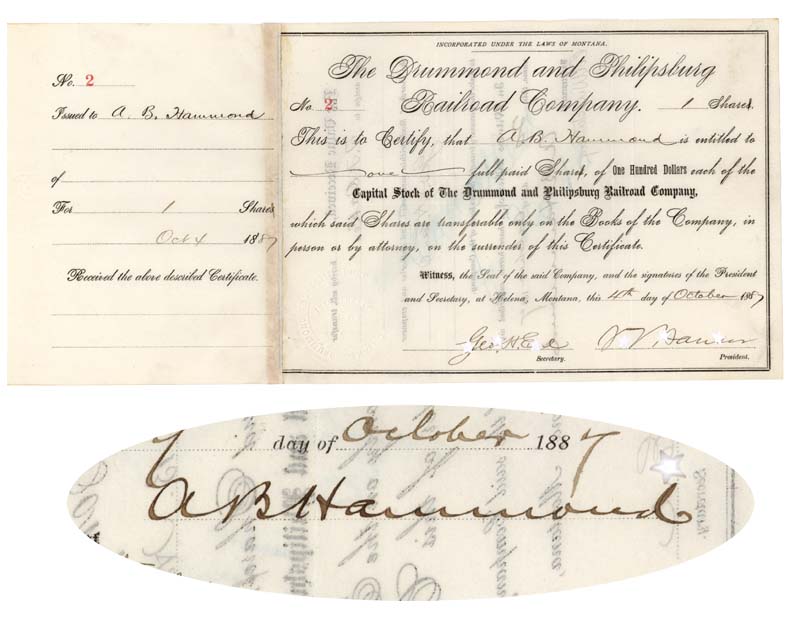 No. 2
Issued to A. B. Hammond
of
For 1 Shares
Oct 4 1887
Received the above described Certificate.
INCORPORATED UNDER THE LAWS OF MONTANA.
The Drummond and Philipsburg
No. 2 Railroad Company. 1 Shares
This is to Certify, that A B. Hammond is entitled to
one full paid Shares, of One Hundred Dollars each of the
Capital Stock of The Drummond and Philipsburg Railroad Company,
which said Shares are transferable only on the Books of the Company, in
person or by attorney, on the surrender of this Certificate.
Witness, the Seal of the said Company, and the signatures of the President
and Secretary, at Helena, Montana, this 4th day of October 1887
Geo. H.
Secretary.
President.
day of October 1887
A B Hammond